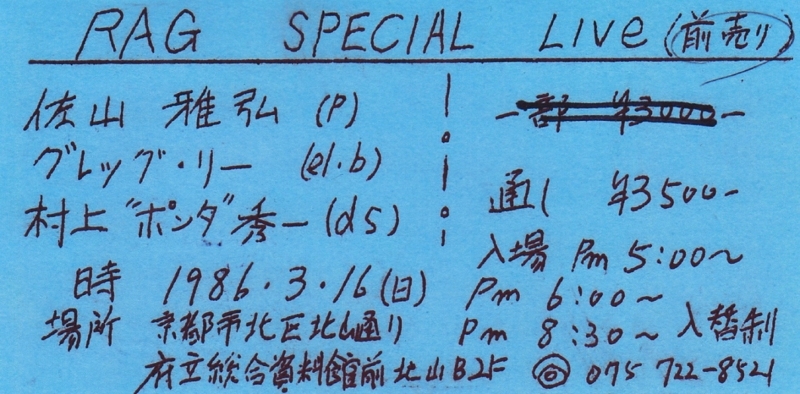 RAG SPECIAL LIVe (前売り)
佐山 雅弘 (P)
グレッグ・リー (el・b)
村上"ポンタ"秀一 (ds)
一部 ¥3000-
通し ¥3500-
入場 Pm 5:00〜
Pm 6:00〜
Pm 8:30〜 入替制
日時 1986・3・16(日)
場所 京都市北区北山通り
府立総合資料館前北山B2F ◎ 075 722-8521